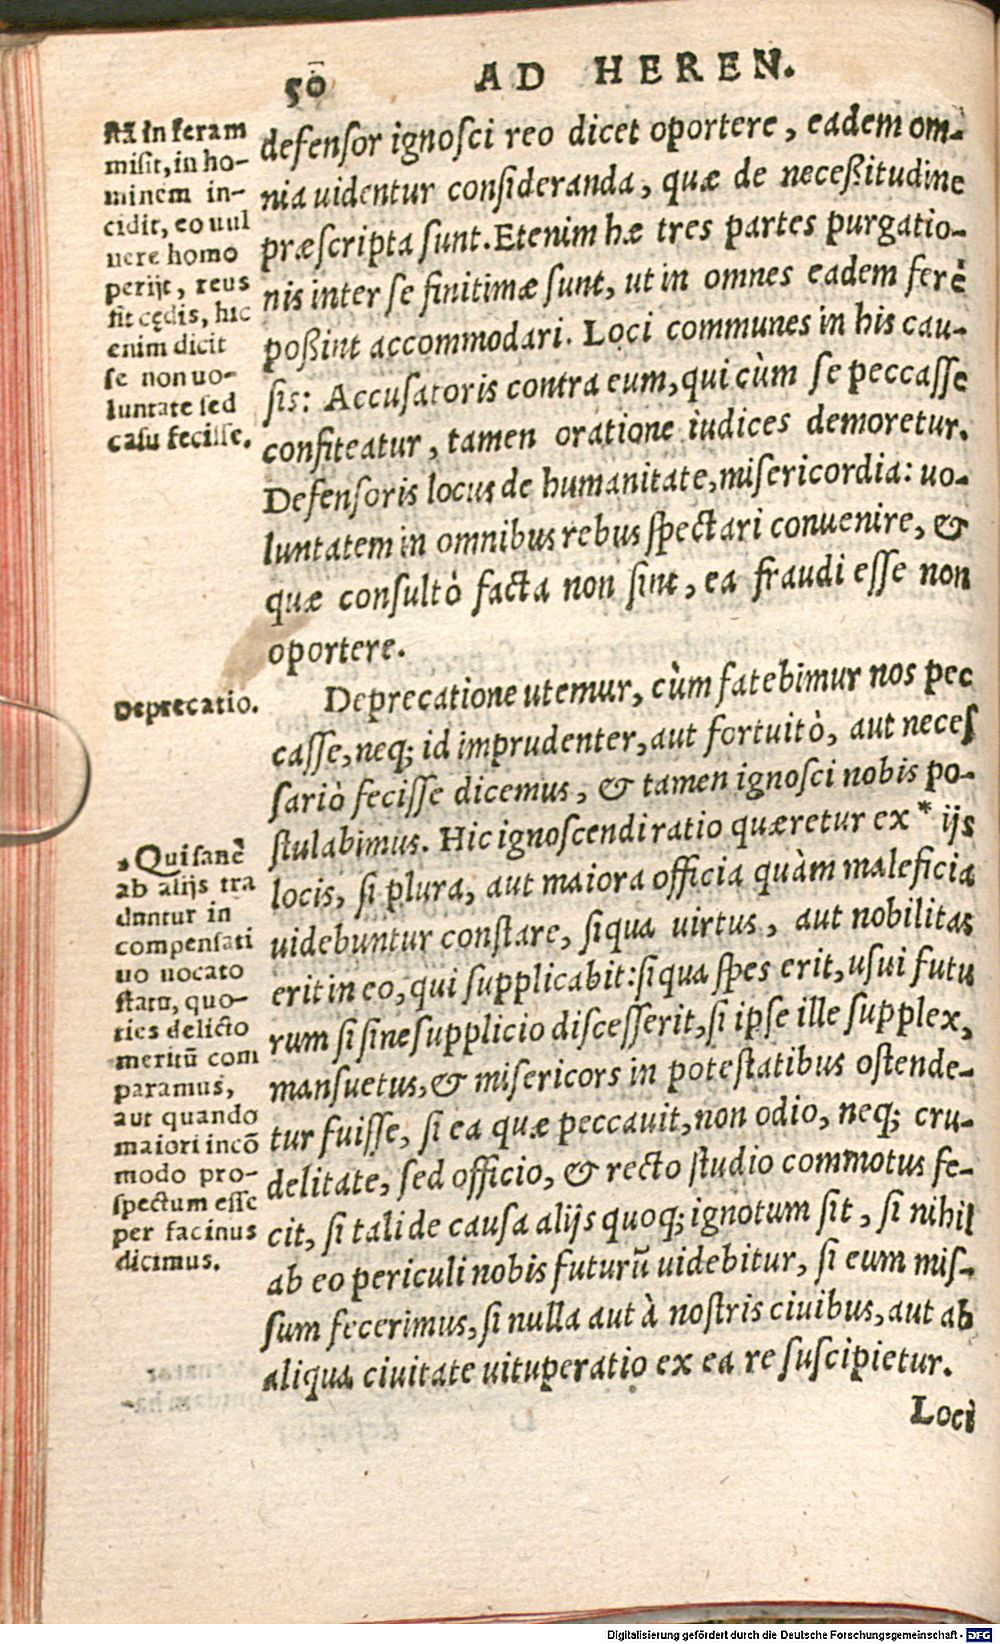 50 AD HEREN.
stā in feram
misit, in ho-
minem in-
cidit, eo uul
nere homo
perijt, reus
fit cędis, hic
enim dicit
se non uo-
luntate sed
casu fecisse.
defensor ignosci reo dicet oportere, eadem om-
nia uidentur consideranda, quæ de neceßitudine
præscripta sunt. Etenim hæ tres partes purgatio-
nis inter se finitimæ sunt, ut in omnes eadem ferè
poßint accommodari. Loci communes in his cau-
sis: Accusatoris contra eum, qui cùm se peccasse
confiteatur, tamen oratione iudices demoretur.
Defensoris locus de humanitate, misericordia: uo-
luntatem in omnibus rebus spectari conuenire, &
quæ consultò facta non sint, ea fraudi esse non
oportere.
Deprecatio.
Deprecatione utemur, cùm fatebimur nos pec
casse, neq; id imprudenter, aut fortuitò, aut neces
sariò fecisse dicemus, & tamen ignosci nobis po-
stulabimus. Hic ignoscendi ratio quæretur ex * ijs
locis, si plura, aut maiora officia quàm maleficia
uidebuntur constare, siqua virtus, aut nobilitas
erit in eo, qui supplicabit: siqua spes erit, usui futu
rum si sine supplicio discesserit, si ipse ille supplex,
mansuetus, & misericors in potestatibus ostende-
tur fuisse, si ea quæ peccauit, non odio, neq; cru-
delitate, sed officio, & recto studio commotus fe-
cit, si tali de causa alijs quoq; ignotum sit, si nihil
ab eo periculi nobis futurū uidebitur, si eum mis-
sum fecerimus, si nulla aut à nostris ciuibus, aut ab
aliqua ciuitate uituperatio ex ea re suscipietur.
* Qui sanè
ab alijs tra
duntur in
compensati
uo uocato
statu, quo-
ties delicto
meritū com
paramus,
aut quando
maiori incō
modo pro-
spectum esse
per facinus
dicimus.
Loci
Digitalisierung gefördert durch die Deutsche Forschungsgemeinschaft - DFG